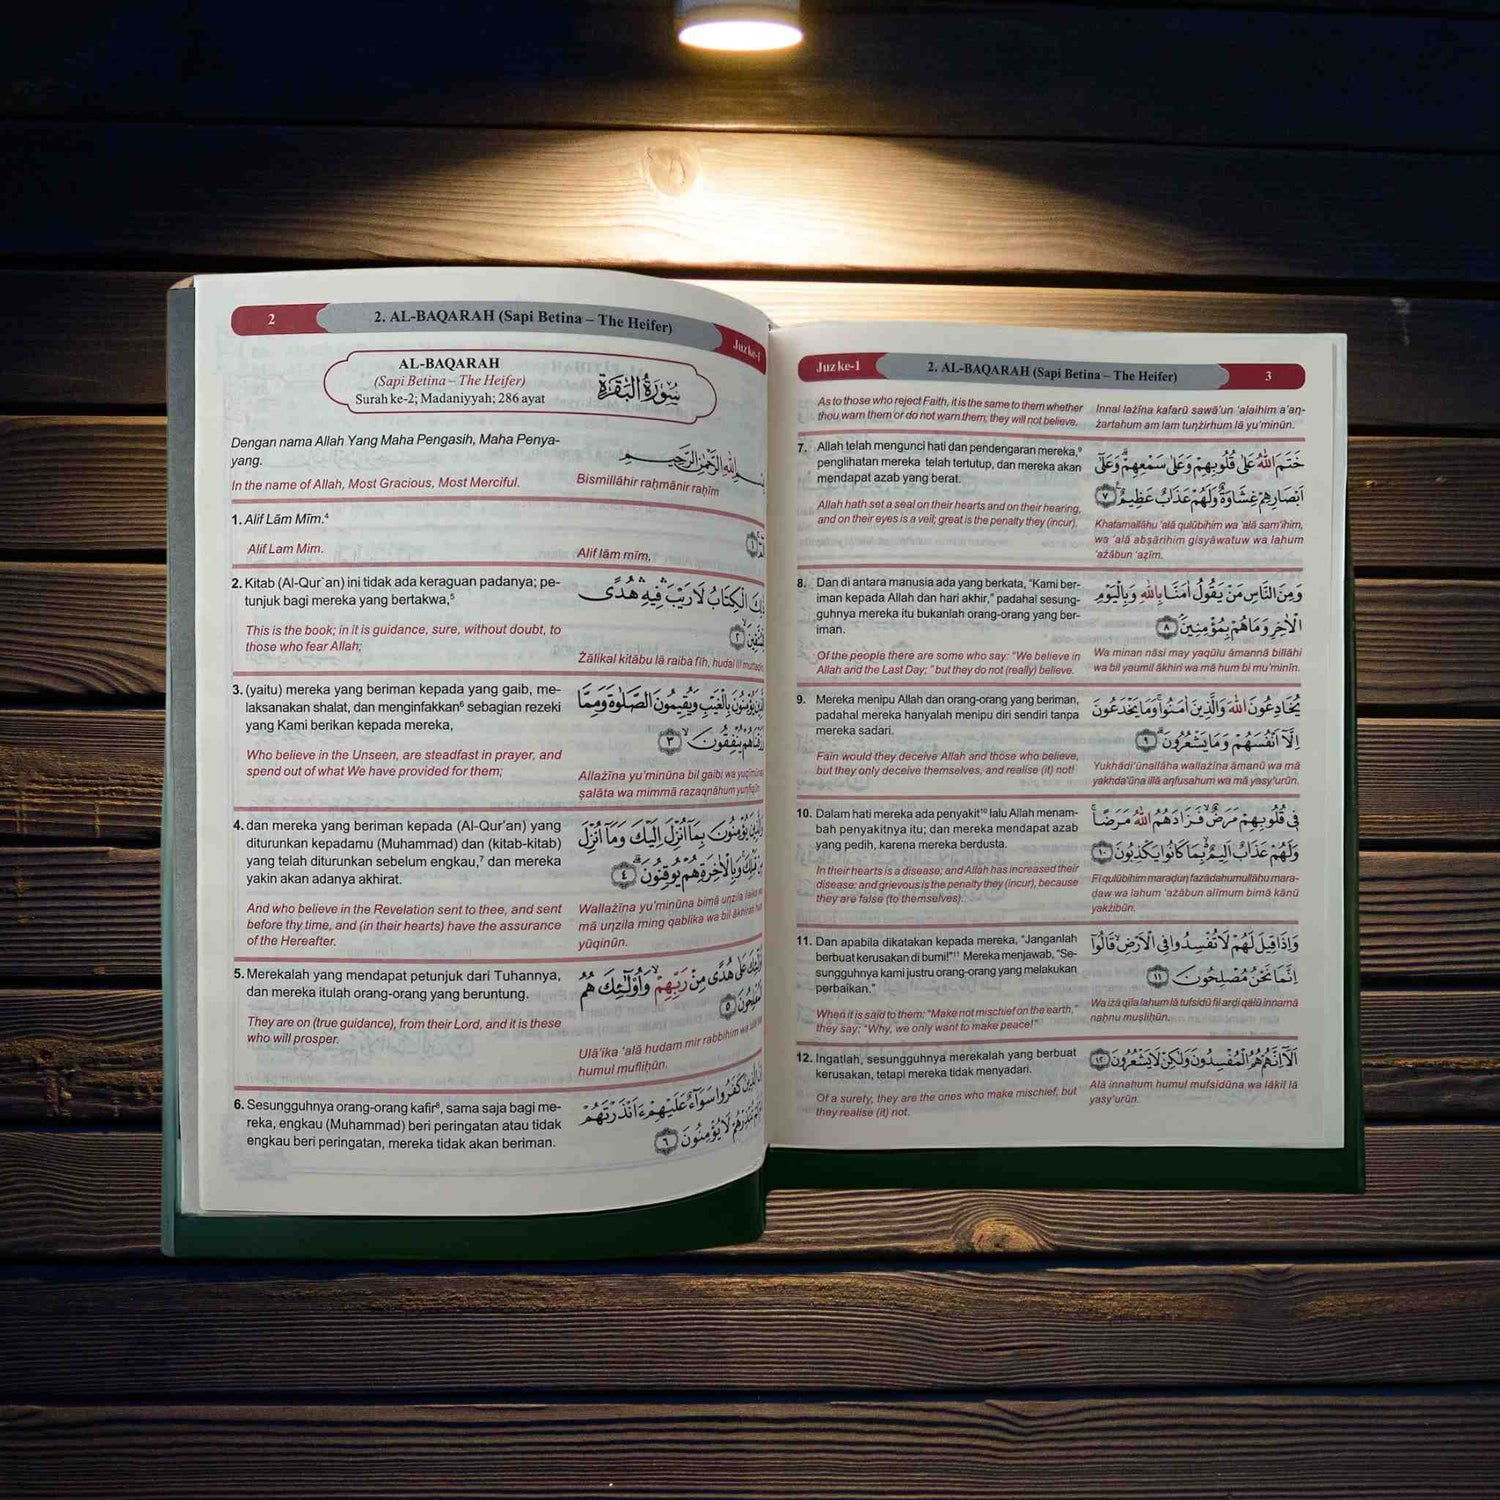 2
2. AL-BAQARAH (Sapi Betina – The Heifer)
Juz ke-1
AL-BAQARAH
(Sapi Betina – The Heifer)
Surah ke-2; Madaniyyah; 286 ayat
سُوْرَةُ الْبَقَرَةِ
Dengan nama Allah Yang Maha Pengasih, Maha Penya-
yang.
In the name of Allah, Most Gracious, Most Merciful.
بِسْمِ اللهِ الرَّحْمٰنِ الرَّحِيْمِ
Bismillāhir raḥmānir raḥīm
1. Alif Lām Mīm.⁴
Alif Lam Mim.
Alif lām mīm,
2. Kitab (Al-Qur`an) ini tidak ada keraguan padanya; pe-
tunjuk bagi mereka yang bertakwa,⁵
This is the book; in it is guidance, sure, without doubt, to
those who fear Allah;
الْكِتَابُ لَا رَيْبَ ۛ فِيْهِ ۛ هُدًى
Żālikal kitābu lā raiba fīh, hudal lil
3. (yaitu) mereka yang beriman kepada yang gaib, me-
laksanakan shalat, dan menginfakkan⁶ sebagian rezeki
yang Kami berikan kepada mereka,
Who believe in the Unseen, are steadfast in prayer, and
spend out of what We have provided for them;
يُؤْمِنُوْنَ بِالْغَيْبِ وَيُقِيْمُوْنَ الصَّلٰوةَ وَمِمَّا
يُنْفِقُوْنَ ۙ ٣
Allażīna yu’minūna bil gaibi wa yuqīmūnaṣ
ṣalāta wa mimmā razaqnāhum yunfiqūn.
4. dan mereka yang beriman kepada (Al-Qur’an) yang
diturunkan kepadamu (Muhammad) dan (kitab-kitab)
yang telah diturunkan sebelum engkau,⁷ dan mereka
yakin akan adanya akhirat.
And who believe in the Revelation sent to thee, and sent
before thy time, and (in their hearts) have the assurance
of the Hereafter.
يُؤْمِنُوْنَ بِمَآ اُنْزِلَ اِلَيْكَ وَمَآ اُنْزِلَ
مِنْ قَبْلِكَ ۚ وَبِالْاٰخِرَةِ هُمْ يُوْقِنُوْنَ ۗ ٤
Wallażīna yu’minūna bimā unzila ilaika wa
mā unzila ming qablika wa bil ākhirati hum
yūqinūn.
5. Merekalah yang mendapat petunjuk dari Tuhannya,
dan mereka itulah orang-orang yang beruntung.
They are on (true guidance), from their Lord, and it is these
who will prosper.
عَلٰى هُدًى مِّنْ رَّبِّهِمْ ۙ وَاُولٰٓئِكَ هُمُ
٥
Ulā’ika ‘alā hudam mir rabbihim wa
humul mufliḥūn.
6. Sesungguhnya orang-orang kafir⁸, sama saja bagi me-
reka, engkau (Muhammad) beri peringatan atau tidak
engkau beri peringatan, mereka tidak akan beriman.
الَّذِيْنَ كَفَرُوْا سَوَآءٌ عَلَيْهِمْ ءَاَنْذَرْتَهُمْ
تُنْذِرْهُمْ لَا يُؤْمِنُوْنَ ٦
Juz ke-1
2. AL-BAQARAH (Sapi Betina – The Heifer)
3
As to those who reject Faith, it is the same to them whether
thou warn them or do not warn them; they will not believe.
Innal lażīna kafarū sawā’un ‘alaihim a’an-
żartahum am lam tunżirhum lā yu’minūn.
7. Allah telah mengunci hati dan pendengaran mereka,⁹
penglihatan mereka telah tertutup, dan mereka akan
mendapat azab yang berat.
Allah hath set a seal on their hearts and on their hearing,
and on their eyes is a veil; great is the penalty they (incur).
خَتَمَ اللهُ عَلٰى قُلُوْبِهِمْ وَعَلٰى سَمْعِهِمْ ۗ وَعَلٰٓى
اَبْصَارِهِمْ غِشَاوَةٌ وَّلَهُمْ عَذَابٌ عَظِيْمٌ ٧
Khatamallāhu ‘alā qulūbihim wa ‘alā sam‘ihim,
wa ‘alā abṣārihim gisyāwatuw wa lahum
‘ażābun ‘aẓīm.
8. Dan di antara manusia ada yang berkata, “Kami ber-
iman kepada Allah dan hari akhir,” padahal sesung-
guhnya mereka itu bukanlah orang-orang yang ber-
iman.
Of the people there are some who say: “We believe in
Allah and the Last Day; ” but they do not (really) believe.
وَمِنَ النَّاسِ مَنْ يَّقُوْلُ اٰمَنَّا بِاللهِ وَبِالْيَوْمِ
الْاٰخِرِ وَمَا هُمْ بِمُؤْمِنِيْنَ ۘ ٨
Wa minan nāsi may yaqūlu āmannā billāhi
wa bil yaumil ākhiri wa mā hum bi mu’minīn.
9. Mereka menipu Allah dan orang-orang yang beriman,
padahal mereka hanyalah menipu diri sendiri tanpa
mereka sadari.
Fain would they deceive Allah and those who believe,
but they only deceive themselves, and realise (it) not!
يُخٰدِعُوْنَ اللهَ وَالَّذِيْنَ اٰمَنُوْا ۚ وَمَا يَخْدَعُوْنَ
اِلَّآ اَنْفُسَهُمْ وَمَا يَشْعُرُوْنَ ۗ ٩
Yukhādi‘ūnallāha wallażīna āmanū wa mā
yakhda‘ūna illā anfusahum wa mā yasy‘urūn.
10. Dalam hati mereka ada penyakit¹⁰ lalu Allah menam-
bah penyakitnya itu; dan mereka mendapat azab
yang pedih, karena mereka berdusta.
In their hearts is a disease; and Allah has increased their
disease; and grievous is the penalty they (incur), because
they are false (to themselves).
فِيْ قُلُوْبِهِمْ مَّرَضٌ ۙ فَزَادَهُمُ اللهُ مَرَضًا ۚ
وَلَهُمْ عَذَابٌ اَلِيْمٌ ۢ بِمَا كَانُوْا يَكْذِبُوْنَ ١٠
Fī qulūbihim maraḍun fazādahumullāhu mara-
ḍaw wa lahum ‘ażābun alīmum bimā kānū
yakżibūn.
11. Dan apabila dikatakan kepada mereka, “Janganlah
berbuat kerusakan di bumi!”¹¹ Mereka menjawab, “Se-
sungguhnya kami justru orang-orang yang melakukan
perbaikan.”
When it is said to them: “Make not mischief on the earth,”
they say: “Why, we only want to make peace!”
وَاِذَا قِيْلَ لَهُمْ لَا تُفْسِدُوْا فِى الْاَرْضِ ۙ قَالُوْٓا
اِنَّمَا نَحْنُ مُصْلِحُوْنَ ١١
Wa iżā qīla lahum lā tufsidū fil arḍi qālū innamā
naḥnu muṣliḥūn.
12. Ingatlah, sesungguhnya merekalah yang berbuat
kerusakan, tetapi mereka tidak menyadari.
Of a surety, they are the ones who make mischief, but
they realise (it) not.
اَلَآ اِنَّهُمْ هُمُ الْمُفْسِدُوْنَ وَلٰكِنْ لَّا يَشْعُرُوْنَ ١٢
Alā innahum humul mufsidūna wa lākil lā
yasy‘urūn.